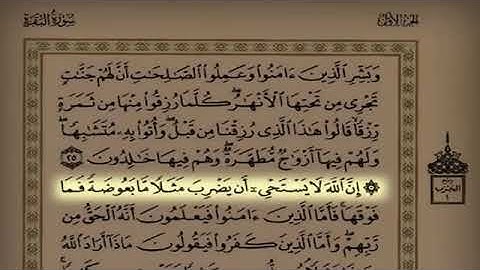 سُورَةُ البَقَرَةِ
الجُزْءُ الأَوَّلُ
وَبَشِّرِ الَّذِينَ ءَامَنُوا وَعَمِلُوا الصَّٰلِحَٰتِ أَنَّ لَهُمْ جَنَّٰتٍ
تَجْرِى مِن تَحْتِهَا الْأَنْهَٰرُ ۖ كُلَّمَا رُزِقُوا مِنْهَا مِن ثَمَرَةٍ
رِّزْقًا ۙ قَالُوا هَٰذَا الَّذِى رُزِقْنَا مِن قَبْلُ ۖ وَأُتُوا بِهِ مُتَشَٰبِهًا ۖ
وَلَهُمْ فِيهَا أَزْوَٰجٌ مُّطَهَّرَةٌ ۖ وَهُمْ فِيهَا خَٰلِدُونَ ٢٥
۞ إِنَّ اللَّهَ لَا يَسْتَحْىِۦ أَن يَضْرِبَ مَثَلًا مَّا بَعُوضَةً فَمَا
فَوْقَهَا ۚ فَأَمَّا الَّذِينَ ءَامَنُوا فَيَعْلَمُونَ أَنَّهُ الْحَقُّ مِن
رَّبِّهِمْ ۖ وَأَمَّا الَّذِينَ كَفَرُوا فَيَقُولُونَ مَاذَا أَرَادَ اللَّهُ
ربع
الحزب
١